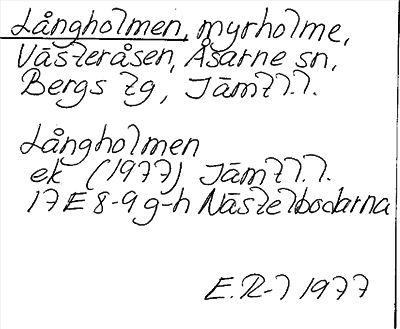 Långholmen, myrholme,
Västeråsen, Åsarne sn,
Bergs tg, Jämtl.l.
Långholmen
ek (1977) Jämtl.l.
17E 8-9 g-h Nästelbodarna
E.R-l 1977